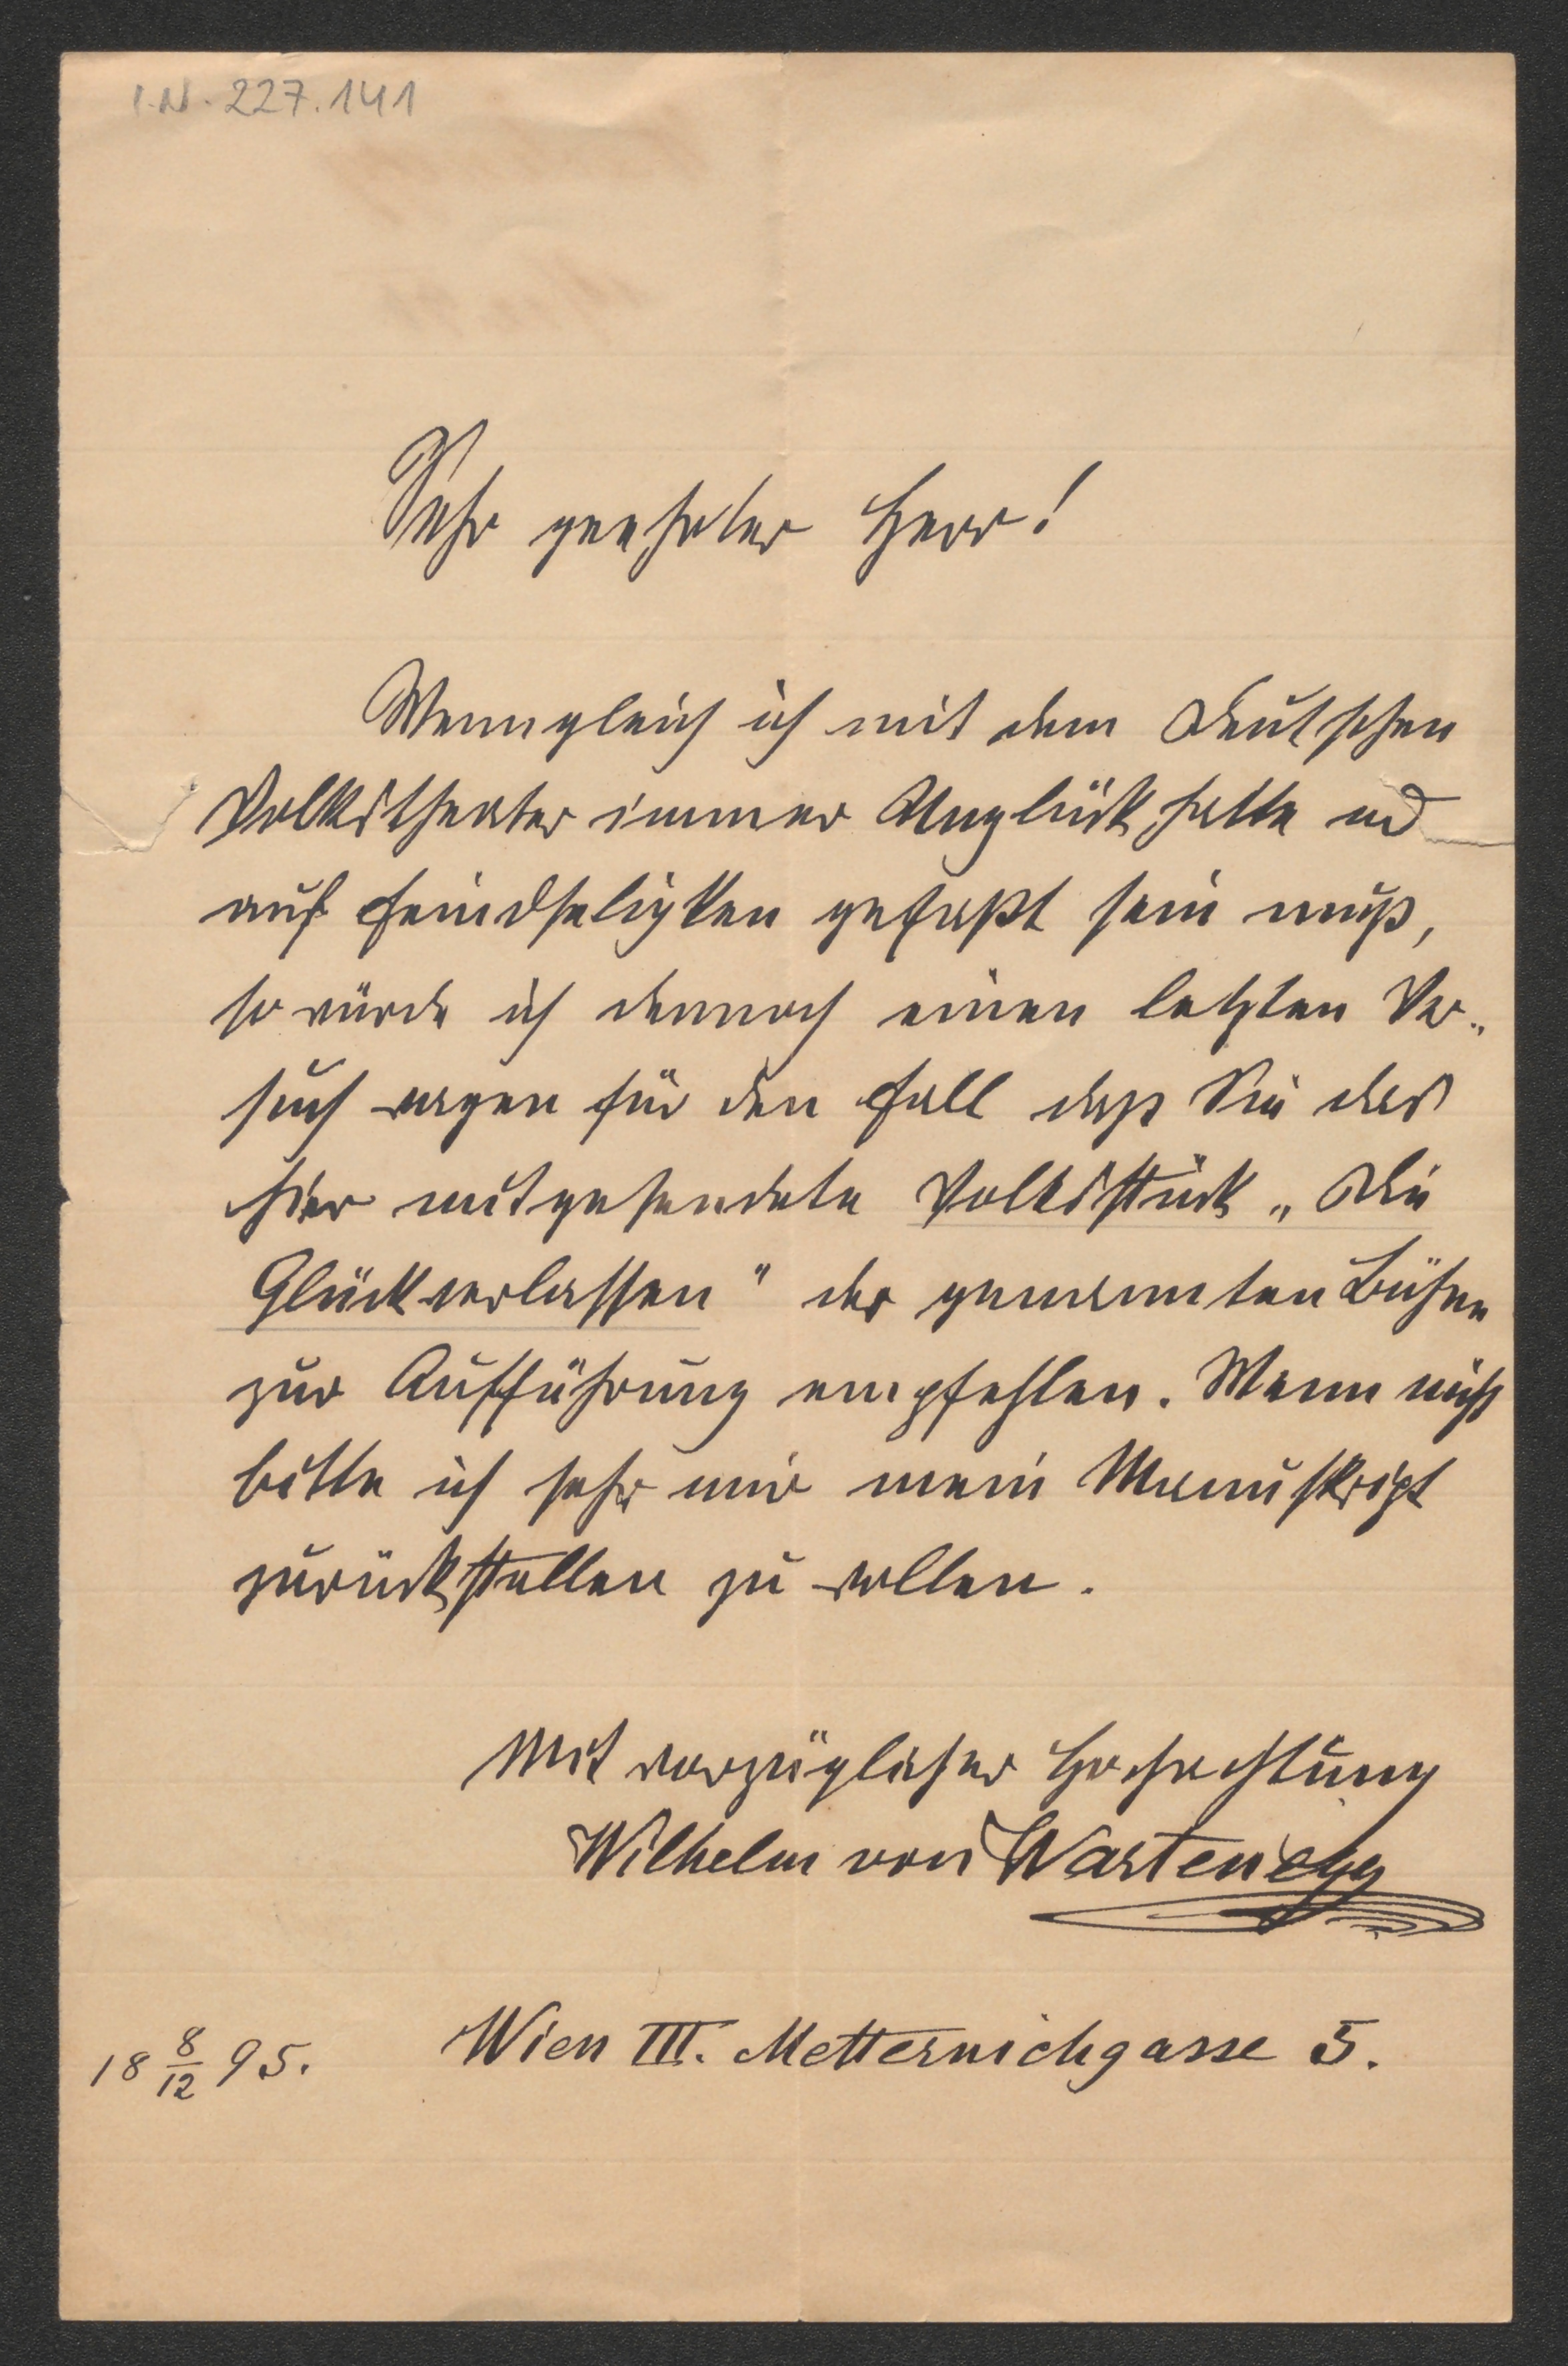 I.N. 227.141
Sehr geehrter Herr!
Wenngleich ich mit dem Deutschen
Volkstheater immer Unglück hatte und
auf Feindseligkten gefaßt sein muß,
so würde ich dennoch einen letzten Ver„
such wagen für den Fall daß Sie das
hier mitgesendete Volksstück „Die
Glückverlassen" der genannten Bühne
zur Aufführung empfehlen. Wenn nicht
bitte ich sehr mir mein Manuskript
zurückstellen zu wollen.
Mit vorzüglicher Hochachtung
Wilhelm von Wartenegg
18 8/12 95. Wien III. Metternichgasse 5.